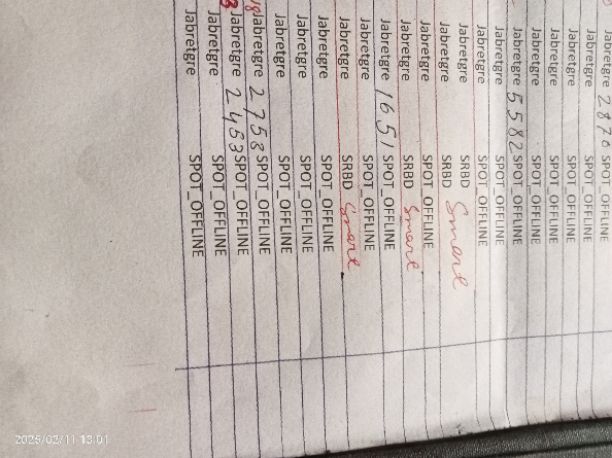 Jabretgre 2870 SPOT_OFFLINE
Jabretgre SPOT_OFFLINE
Jabretgre SPOT_OFFLINE
Jabretgre SPOT_OFFLINE
Jabretgre SPOT_OFFLINE
Jabretgre 5582 SPOT_OFFLINE
Jabretgre SPOT_OFFLINE
Jabretgre SPOT_OFFLINE
Jabretgre SRBD Smart
Jabretgre SRBD
Jabretgre SPOT_OFFLINE
Jabretgre SRBD Smart
Jabretgre 1651 SPOT_OFFLINE
Jabretgre SPOT_OFFLINE
Jabretgre SRBD Smart
Jabretgre SPOT_OFFLINE
Jabretgre SPOT_OFFLINE
Jabretgre SPOT_OFFLINE
Jabretgre 2758 SPOT_OFFLINE
Jabretgre 2463 SPOT_OFFLINE
Jabretgre SPOT_OFFLINE
Jabretgre SPOT_OFFLINE
2025/02/11 13:01